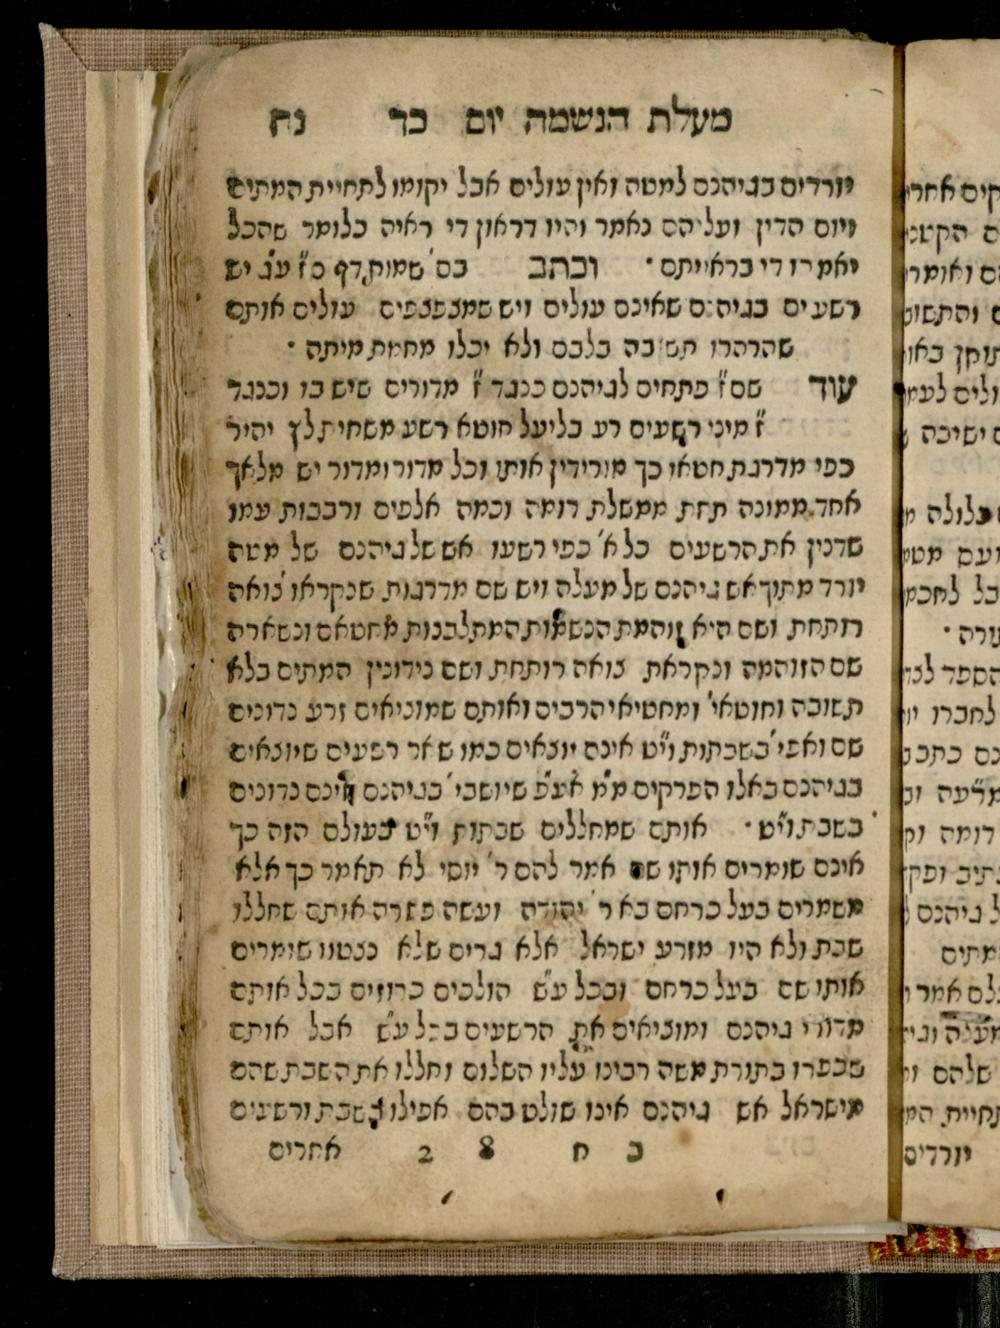 מעלת הנשמה יום כד נח
יורדים בגיהנם למטה ואין עולים אבל יקומו לתחיית המתים
ויום הדין ועליהם נאמר והיו דראון די ראיה כלומר שהכל
יאמרו די בראייתם · וכתב בס' שמות דף כ"ז ע"ג יש
רשעים בגיהנם שאינם עולים ויש שמצפצפים עולים אותם
שהרהרו תשובה בלבם ולא יכלו מחמת מיתה ·
עוד שם ז' פתחים לגיהנם כנגד ז' מדורים שיש בו וכנגד
ז' מיני רשעים רע בליעל חוטא רשע משחית לץ יהיר
כפי מדרגת חטאו כך מורידין אותו וכל מדור ומדור יש מלאך
אחד ממונה תחת ממשלת דומה וכמה אלפים ורבבות עמו
שדנין את הרשעים כל א' כפי רשעו אש של גיהנם של מטה
יורד מתוך אש גיהנם של מעלה ויש שם מדרגות שנקראו צואה
רותחת ושם היא זוהמת הנשמות המתלבנות מחטאם ונשארה
שם הזוהמה ונקראת צואה רותחת ושם נידונין המתים בלא
תשובה וחוטאי' ומחטיאי הרבים ואותם שמוציאים זרע נדונים
שם ואפי' בשבתות וי"ט אינם יוצאים כמו שאר רשעים שיוצאים
בגיהנם באלו הפרקים מ"מ אע"פ שיושבי' בגיהנם אינם נדונים
בשבת וי"ט · אותם שמחללים שבתות וי"ט בעולם הזה כך
אינם שומרים אותו שם אמר להם ר' יוסי לא תאמר כך אלא
משמרים בעל כרחם בא ר' יהודה ועשה פשרה אותם שחללו
שבת ולא היו מזרע ישראל אלא גרים שלא נצטוו שומרים
אותו שם בעל כרחם ובכל ע"ש הולכים כרוזים בכל אותם
מדורי גיהנם ומוציאים את הרשעים בכל ע"ש אבל אותם
שכפרו בתורת משה רבינו עליו השלום וחללו את השבת שהם
מישראל אש גיהנם אינו שולט בהם אפילו בשבת ורשעים
כ ח 8 2 אחרים